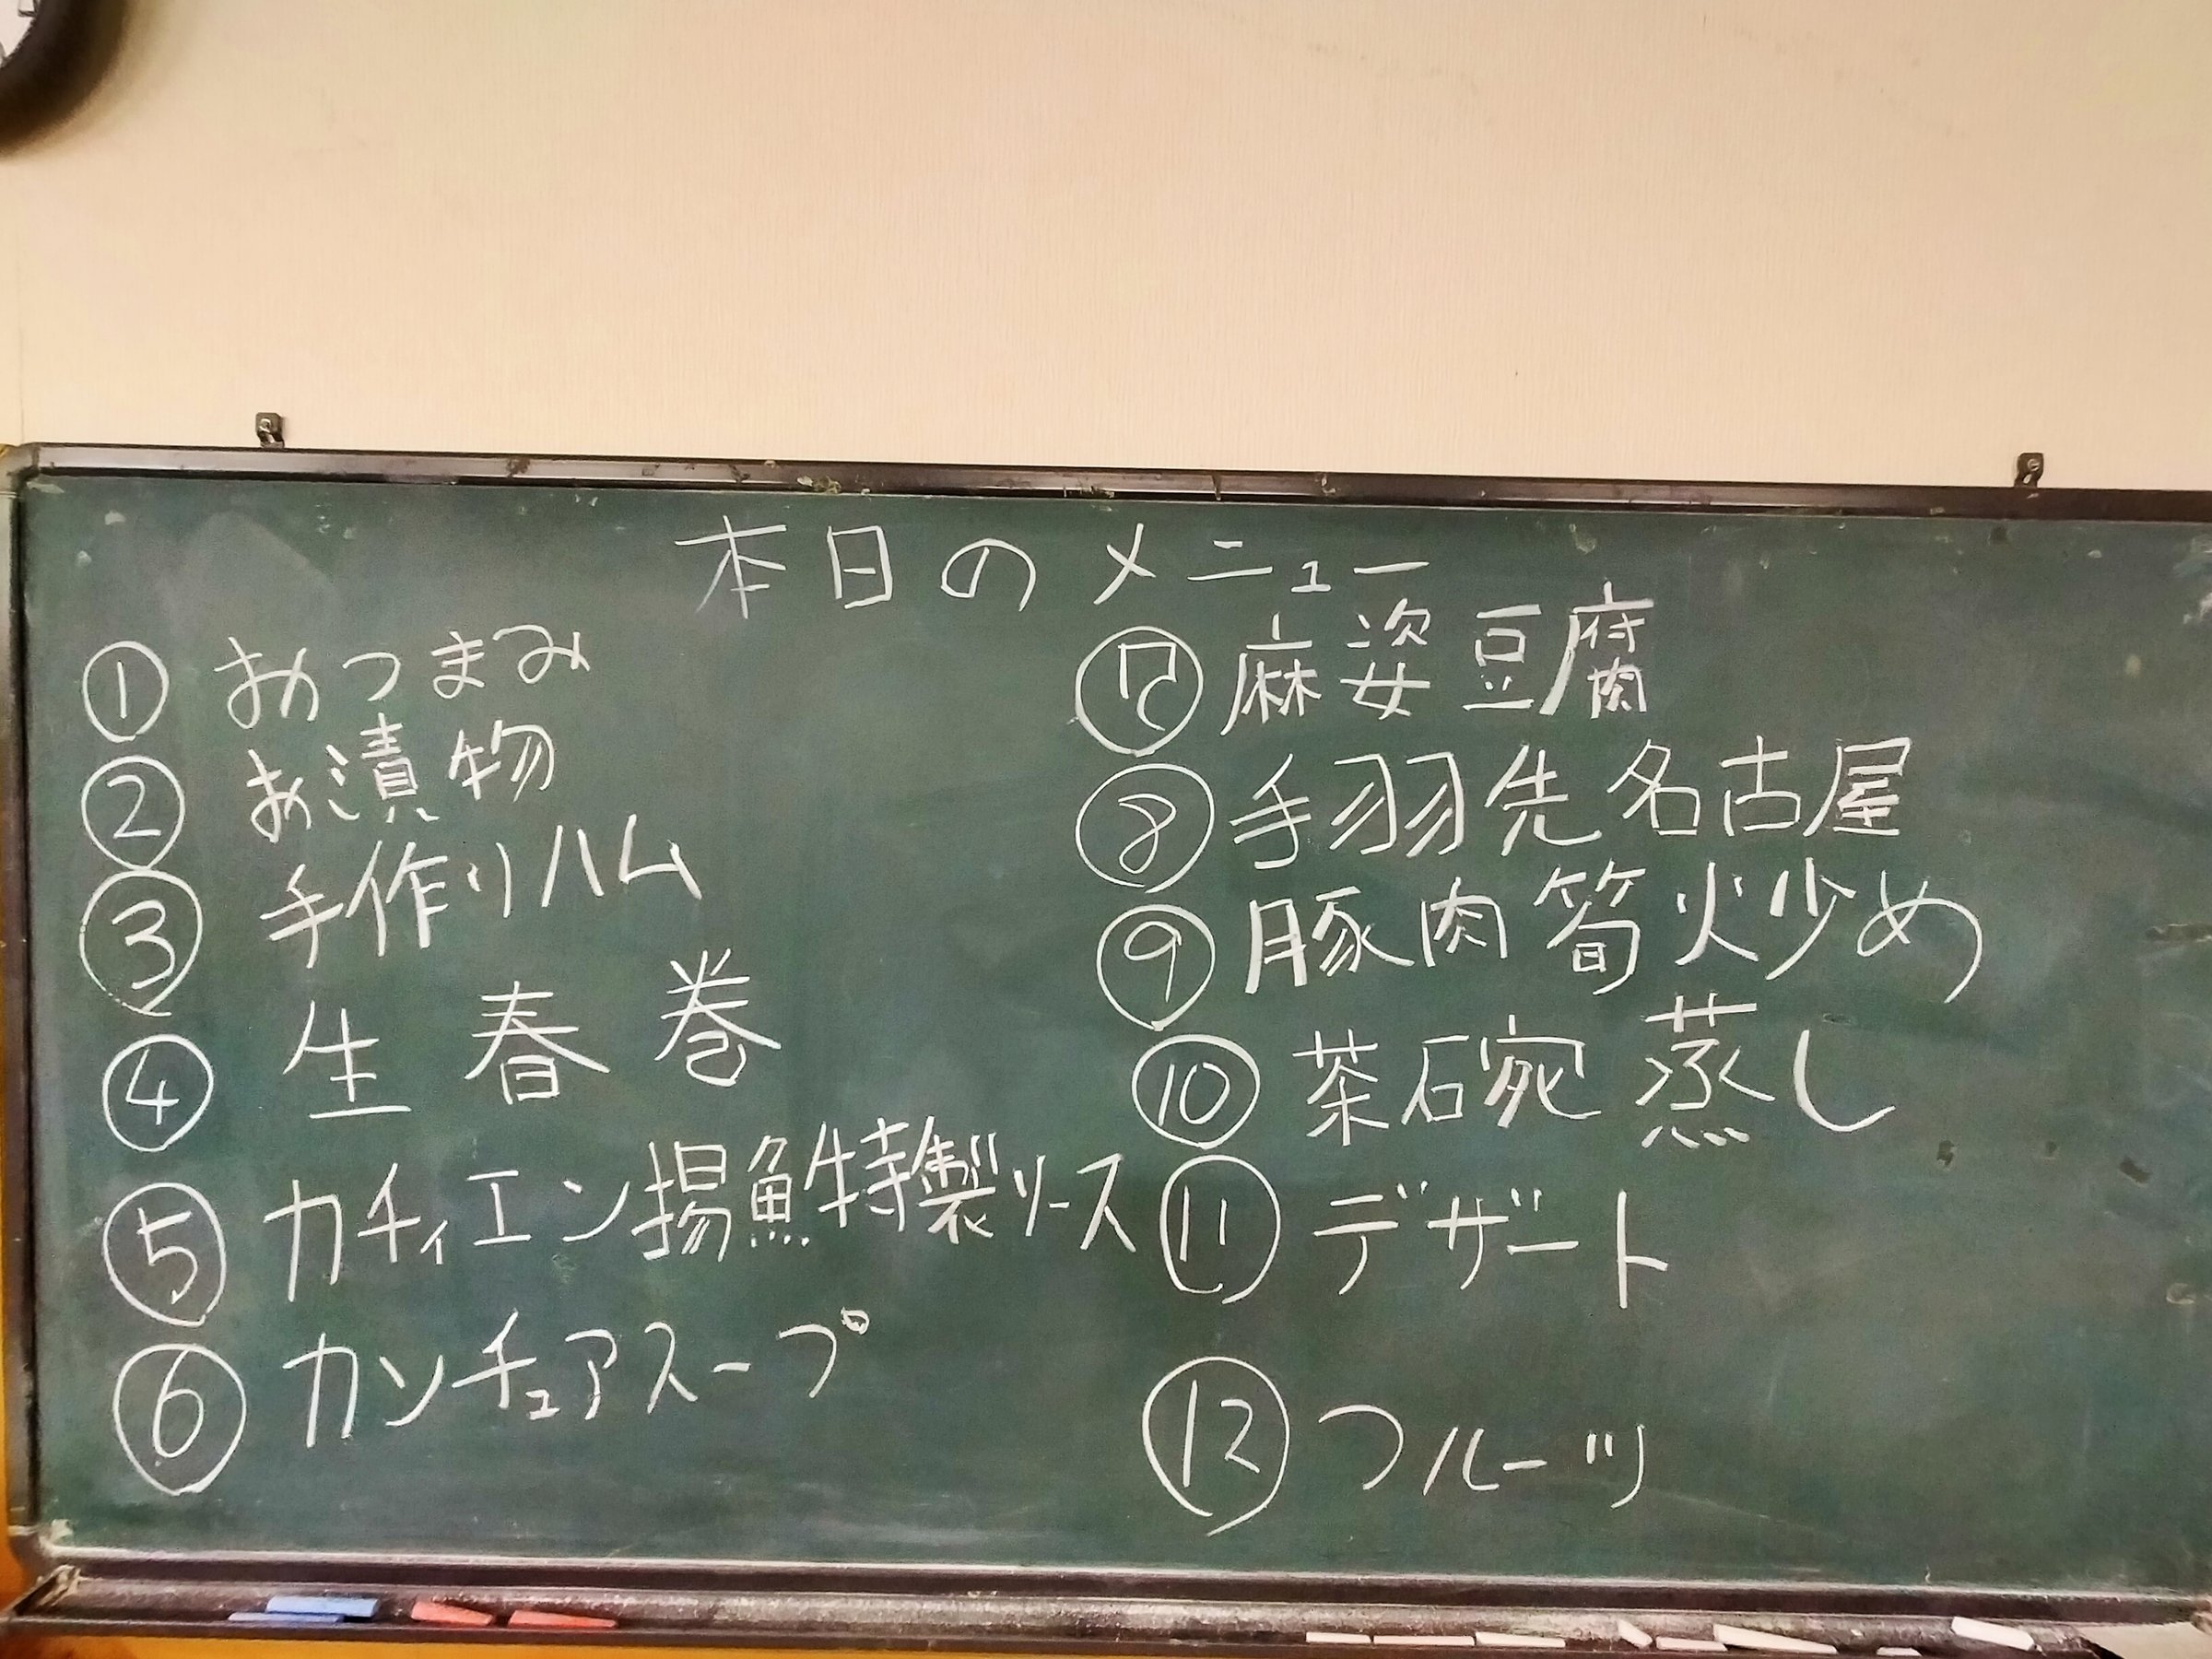 本日のメニュー
① おつまみ
② お漬物
③ 手作りハム
④ 生春巻
⑤ カチィエン揚魚特製ソース
⑥ カンチュアスープ
⑦ 麻姿豆腐
⑧ 手羽先名古屋
⑨ 豚肉筍炒め
⑩ 茶碗蒸し
⑪ デザート
⑫ フルーツ